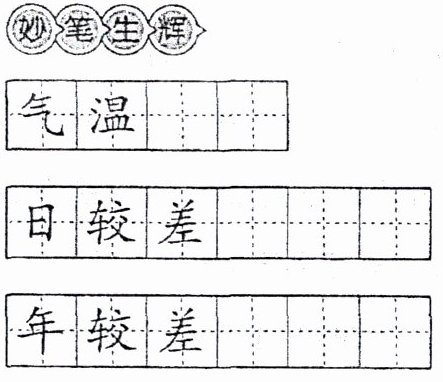 妙笔生辉
气温
日较差
年较差